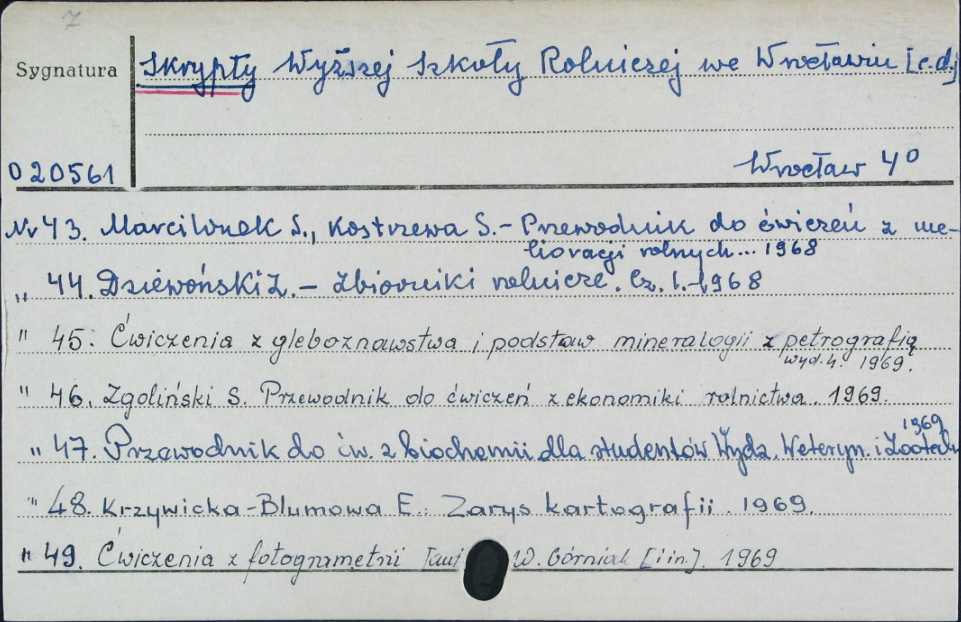 Z
Sygnatura
Skrypty Wyższej Szkoły Rolniczej we Wrocławiu [c.d.]
020561
Wrocław 4°
Nr 43. Marciniuk S., Kostrzewa S. - Przewodnik do ćwiczeń z me-
lioracji rolnych... 1968
„ 44. Dziewoński Z. - Zbiorniki rolnicze. Cz. 1. - 1968
" 45. Ćwiczenia z gleboznawstwa i podstaw mineralogii z petrografią
wyd. 4. 1969.
" 46. Zgoliński S. Przewodnik do ćwiczeń z ekonomiki rolnictwa. 1969.
" 47. Przewodnik do ćw. z biochemii dla studentów Wydz. Weteryn. i Zootechn.
1969
" 48. Krzywicka-Blumowa E. Zarys kartografii. 1969.
" 49. Ćwiczenia z fotogrametrii W. Górniak [i in.]. 1969